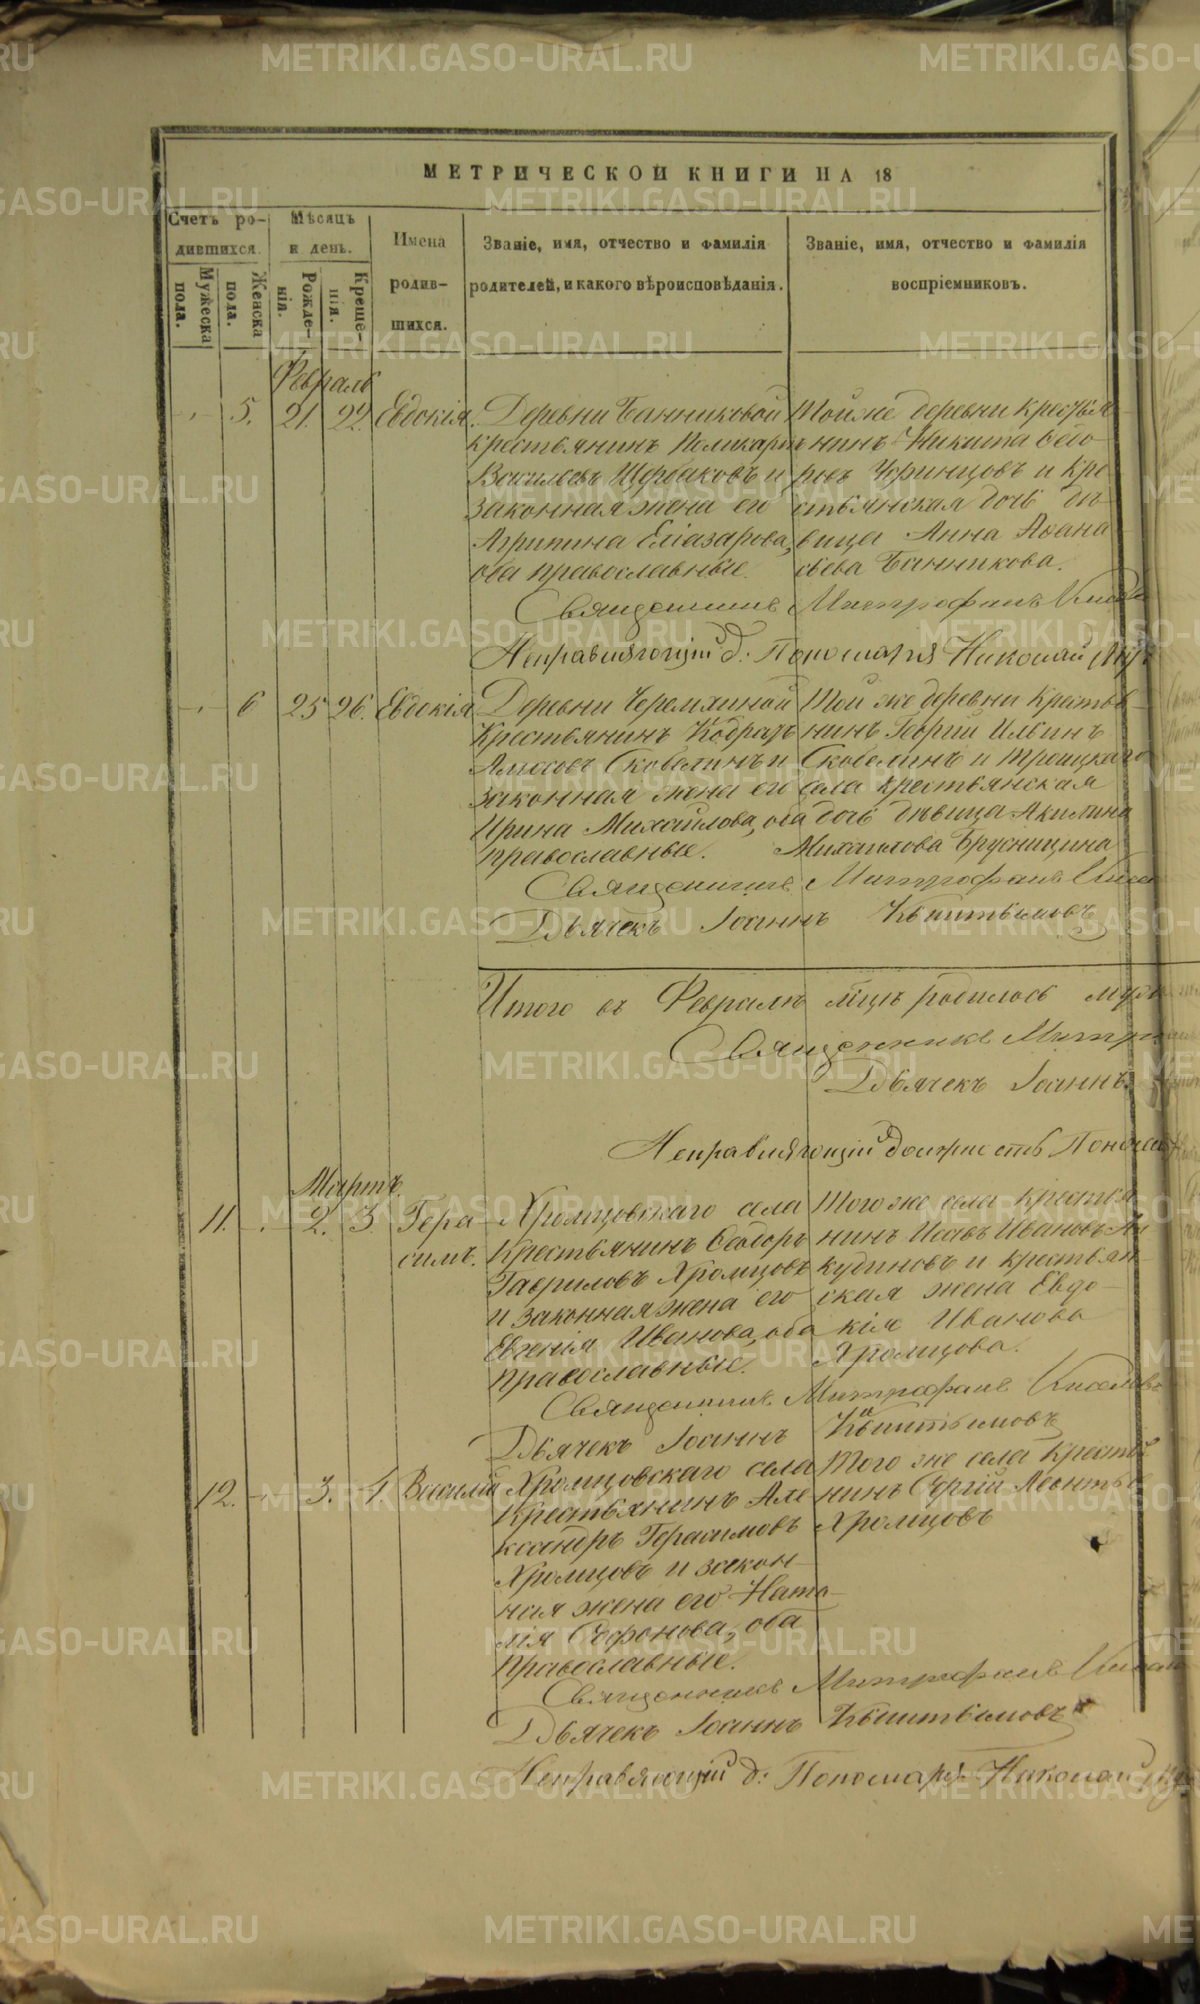 МЕТРИЧЕСКОЙ КНИГИ НА 18
Счетъ родившихся.
Мужеска пола.
Женска пола.
Мѣсяцъ и день.
Рожденія.
Крещенія.
Имена родившихся.
Званіе, имя, отчество и фамилія родителей, и какого вѣроисповѣданія.
Званіе, имя, отчество и фамилія воспріемниковъ.
Февраль
5. 21. 22. Евдокія.
Деревни Банниковой
крестьянинъ Поликарпъ
Васильевъ Щербаковъ и
законная жена его
Агрипина Еліазарова,
оба православные.
Той же деревни крестья-
нинъ Никита Его-
ровъ Чернцовъ и кре-
стьянская дочь дѣ-
вица Анна Аѳана
сьева Банникова.
Священникъ Митрофанъ
Исправляющій д: Пономаря Николай
6 25 26. Евдокія
Деревни Черемхиной
Крестьянинъ Кодратъ
Амосовъ Сковелинъ и
законная жена его
Ирина Михайлова, оба
православные.
Той же деревни Крестья-
нинъ Георгій Ильинъ
Сковелинъ и Троицкаго
села крестьянская
дочь дѣвица Акилина
Михаилова Брусницина
Священникъ Митрофанъ
Дьячекъ Іоаннъ Кыштымовъ
Итого въ Февралѣ мѣцѣ родилось
Священникъ
Дьячекъ Іоаннъ
Исправляющій должность
Мартъ.
11. 2. 3 Гера
симъ.
Хромцовскаго села
Крестьянинъ Ѳеодоръ
Гавриловъ Хромцовъ
и законная жена его
Евгенія Иванова, оба
православные.
Того же села крестья
нинъ Исакъ Ивановъ Ан
кудиновъ и крестьян-
ская жена Евдо-
кія Иванова
Хромцова.
Священникъ Митрофанъ Киселевъ
Дьячекъ Іоаннъ Кыштымовъ
12. 3. 4 Василій
Хромцовскаго села
Крестьянинъ Але
ксандръ Герасимовъ
Хромцовъ и закон-
ная жена его Ната-
лія Софонова, оба
Православные.
Того же села Крестья
нинъ Сергій Леонтьев
Хромцовъ
Священникъ Митрофанъ
Дьячекъ Іоаннъ Кыштымовъ
Исправляющій д: Пономаря Николай
METRIKI.GASO-URAL.RU